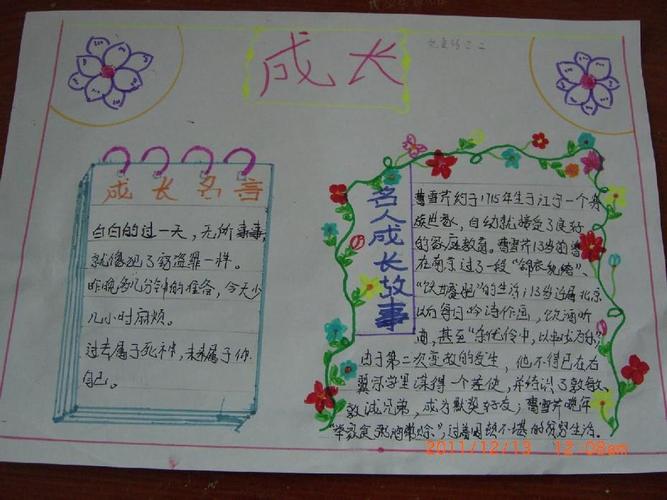 成长
成长名言
白白的过一天，无所事事，
就像犯了窃盗罪一样。
昨晚多几分钟的准备，今天少
几小时麻烦。
过去属于死神，未来属于你
自己。
名人成长故事
曹雪芹约于1715年生于江宁一个贵
族世家，自幼就接受了良好
的家庭教育。曹雪芹13岁前曾
在南京过了一段“锦衣纨绔”、
“饫甘餍肥”的生活；13岁迁居北京
以后每日吟诗作画，
，甚至“杂优伶中，
由于第二次变故的发生，他不得已在右
翼宗学里谋得一个差使，并结识了敦敏、
敦诚兄弟，成为默契好友；曹雪芹晚年
“举家食粥”，过着困顿不堪的贫穷生活。
2011/12/13 12:08am